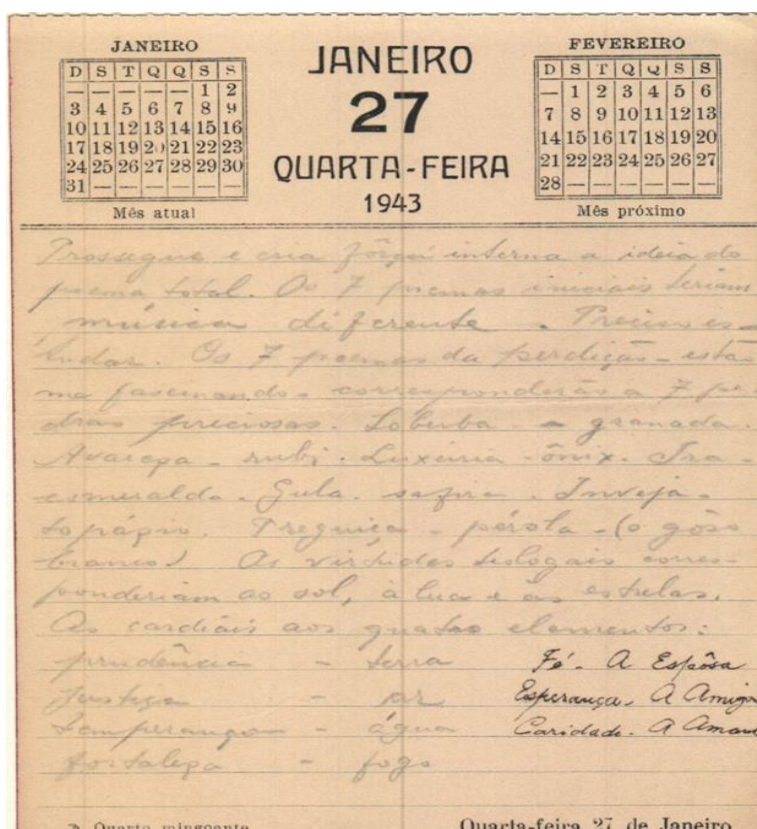 JANEIRO
D S T Q Q S S
— — — — — 1 2
3 4 5 6 7 8 9
10 11 12 13 14 15 16
17 18 19 20 21 22 23
24 25 26 27 28 29 30
31 — — — — — —
Mês atual
JANEIRO
27
QUARTA-FEIRA
1943
FEVEREIRO
D S T Q Q S S
— 1 2 3 4 5 6
7 8 9 10 11 12 13
14 15 16 17 18 19 20
21 22 23 24 25 26 27
28 — — — — — —
Mês próximo
Prossegue e cria fôrça interna a ideia do
poema total. Os 7 poemas iniciais teriam
música diferente. Preciso es-
tudar. Os 7 poemas da perdição - estão
me fascinando - corresponderão a 7 pe-
dras preciosas. Soberba - granada.
Avareza - rubi. Luxúria - ônix. Ira -
esmeralda. Gula - safira. Inveja -
topázio. Preguiça - pérola - (o gôso
branco) As virtudes teologais corres-
ponderiam ao sol, à lua e às estrelas.
As cardiais aos quatro elementos:
prudência - terra
justiça - ar
temperança - água
fortaleza - fogo
Fé - A Espôsa
Esperança - A Amiga
Caridade - A
Quarto minguante
Quarta-feira 27 de Janeiro